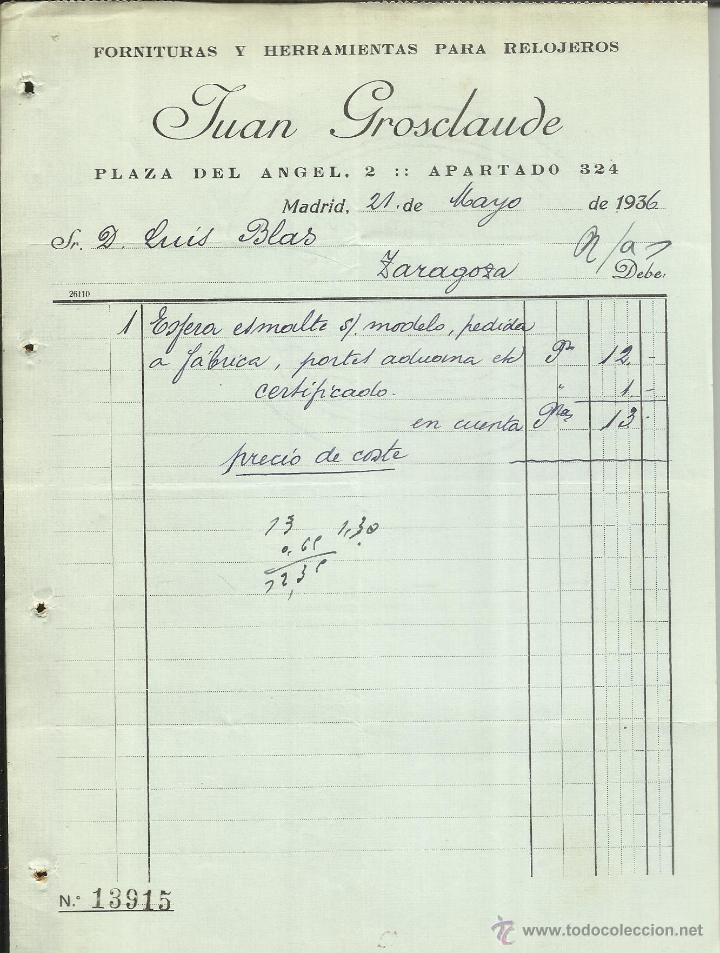 FORNITURAS Y HERRAMIENTAS PARA RELOJEROS
Juan Grosclaude
PLAZA DEL ANGEL, 2 :: APARTADO 324
Madrid, 21 de Mayo de 1936
Sr. D. Luís Blas
Zaragoza
Debe:
26110
1 Esfera esmalte s/. modelo, pedida
a fábrica, portes aduana etc 12.-
certificado. " 1.-
en cuenta Ptas 13.-
precio de coste
13 1,30
0,65
12,35
N.° 13915
www.todocoleccion.net